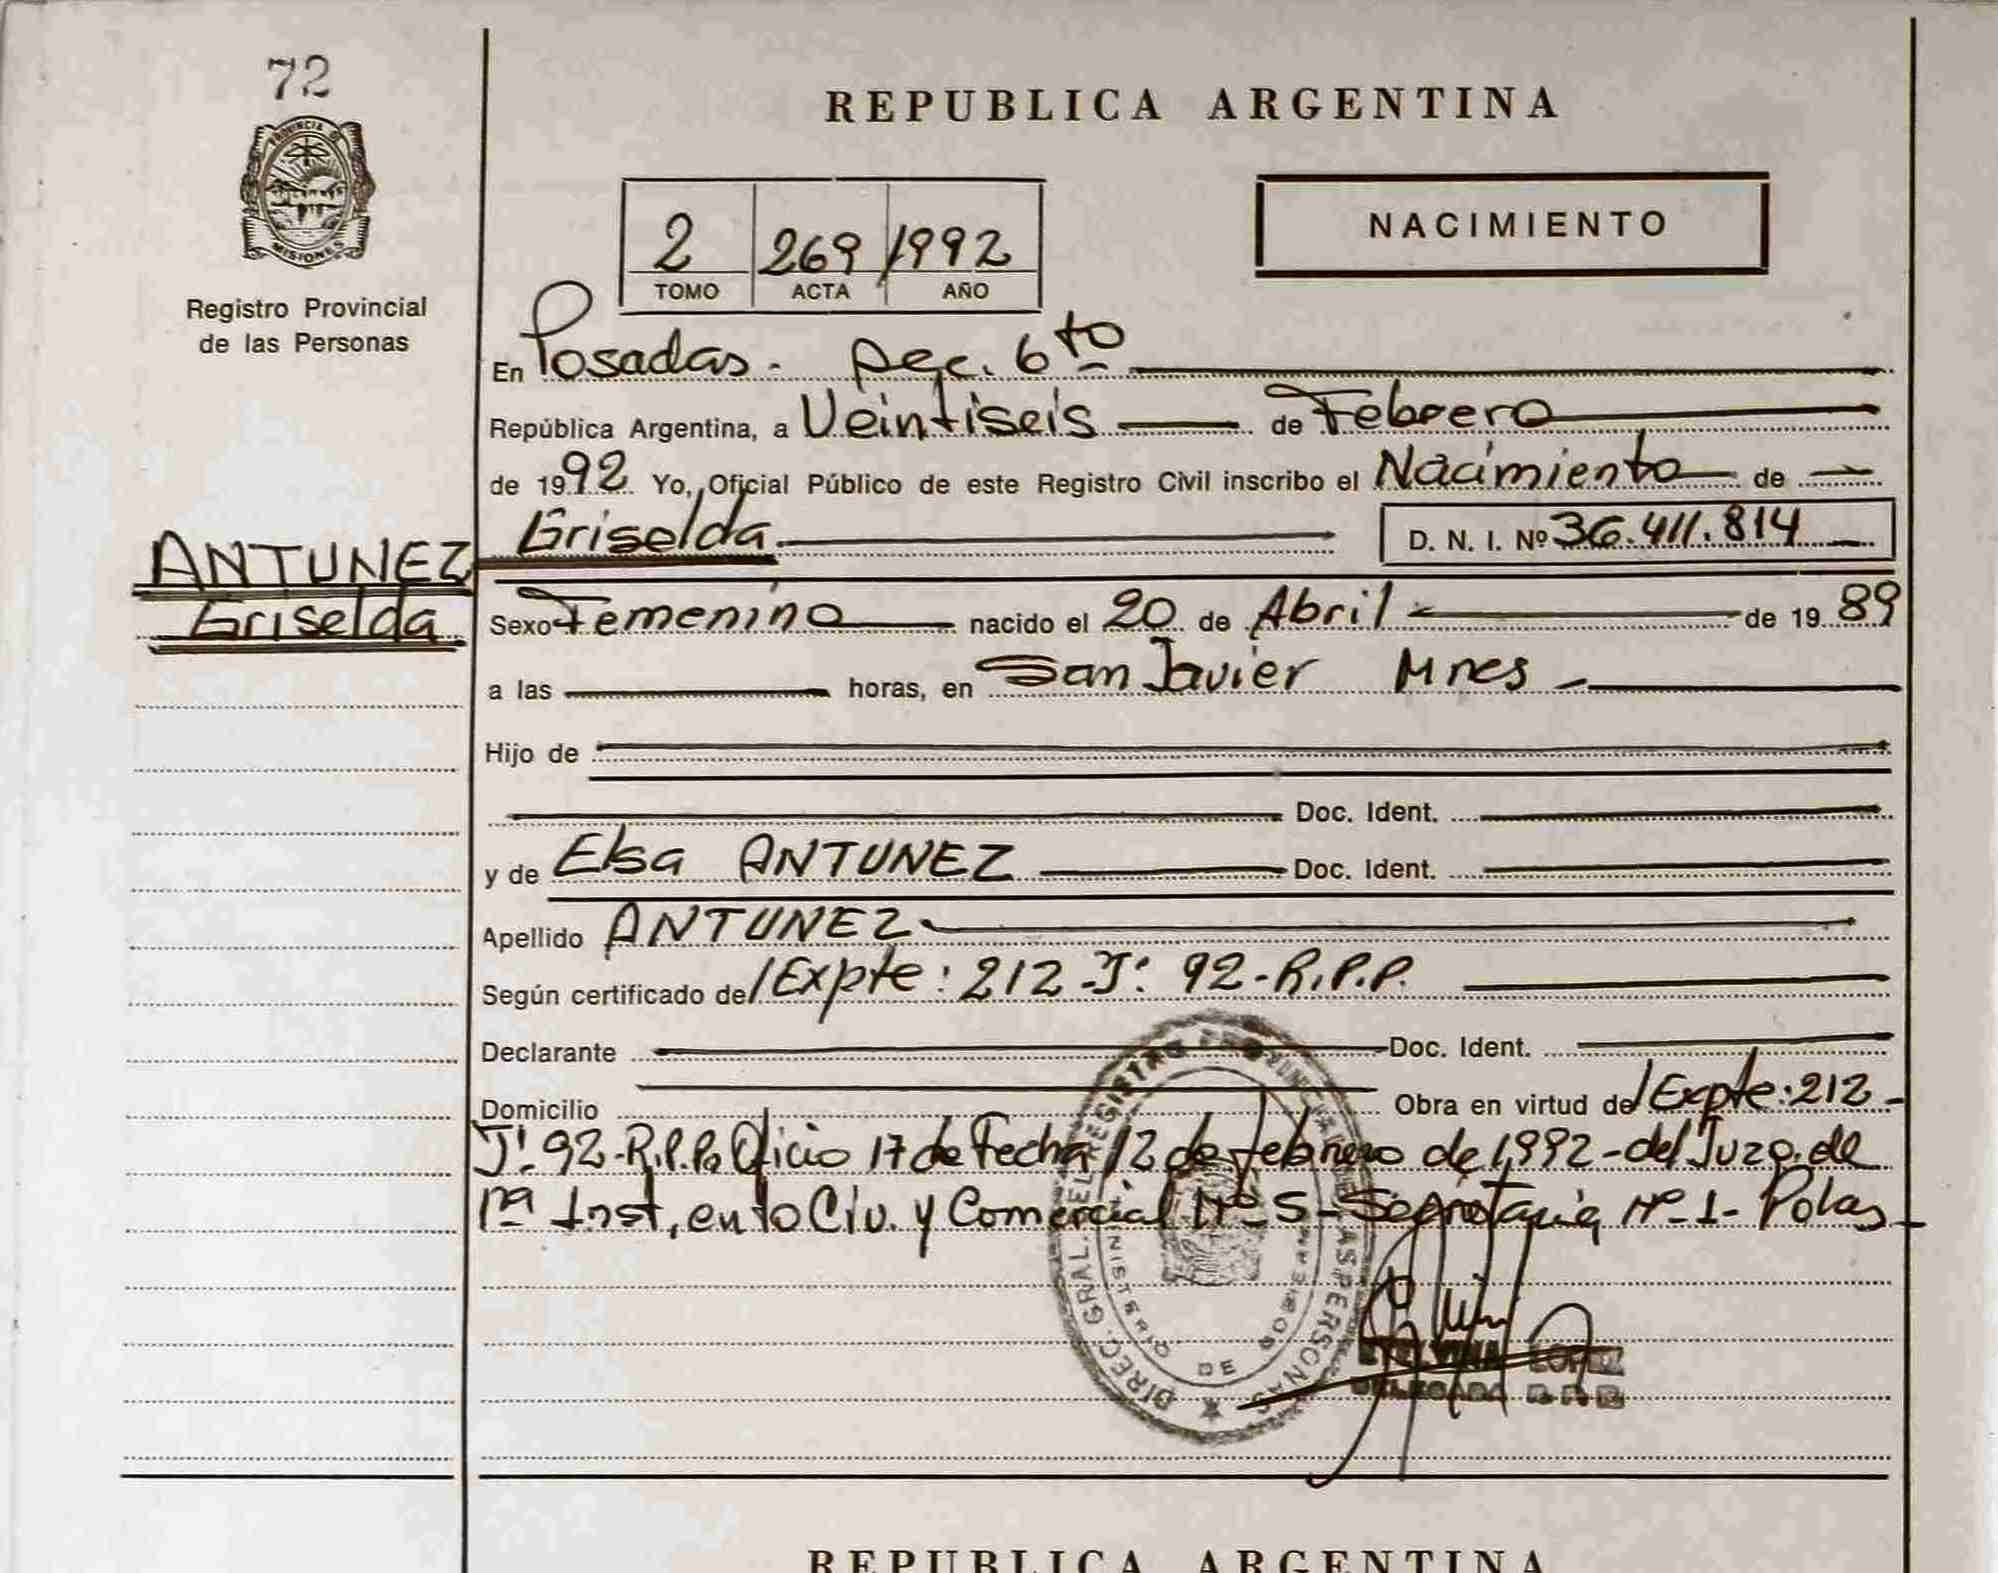 72
PROVINCIA DE
MISIONES
Registro Provincial
de las Personas
ANTUNEZ
Griselda
REPUBLICA ARGENTINA
2 269 1992
TOMO ACTA AÑO
NACIMIENTO
En Posadas - Sec. 6to
República Argentina, a Veintiseis de Febrero
de 1992. Yo, Oficial Público de este Registro Civil inscribo el Nacimiento de
Griselda D. N. I. Nº 36.411.814
Sexo Femenino nacido el 20 de Abril de 1989
a las horas, en San Javier Mnes -
Hijo de
Doc. Ident.
y de Elsa ANTUNEZ Doc. Ident.
Apellido ANTUNEZ
Según certificado de/Expte: 212 J: 92-R.P.P.
Declarante Doc. Ident.
Domicilio Obra en virtud de/Expte: 212-
J: 92-R.P.P. Oficio 17 de Fecha 12 de febrero de 1992 - del Juzg. de
1ra Inst, en lo Civ. y Comercial Nº 5 - Secretaria Nº 1 - Pdas -
DIREC. GRAL. DEL REGISTRO PROVINCIAL DE LAS PERSONAS
MINISTERIO DE GOBIERNO
LOPEZ
REPUBLICA ARGENTINA